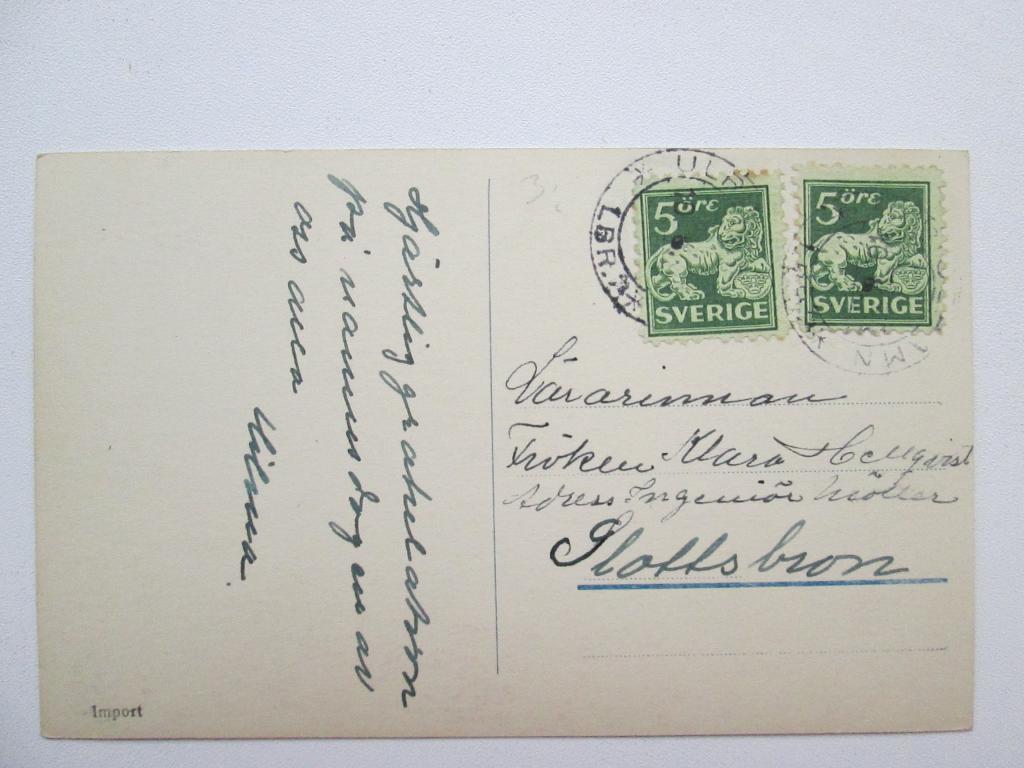 Hjärtlig gratulation
på namnsdagen av
oss alla
Hilma.
3.
ULR
LBR.
5 öre
SVERIGE
5 öre
SVERIGE
AMN
Lärarinnan
Fröken Klara Hellqvist
Adress Ingeniör Möller
Slottsbron
Import